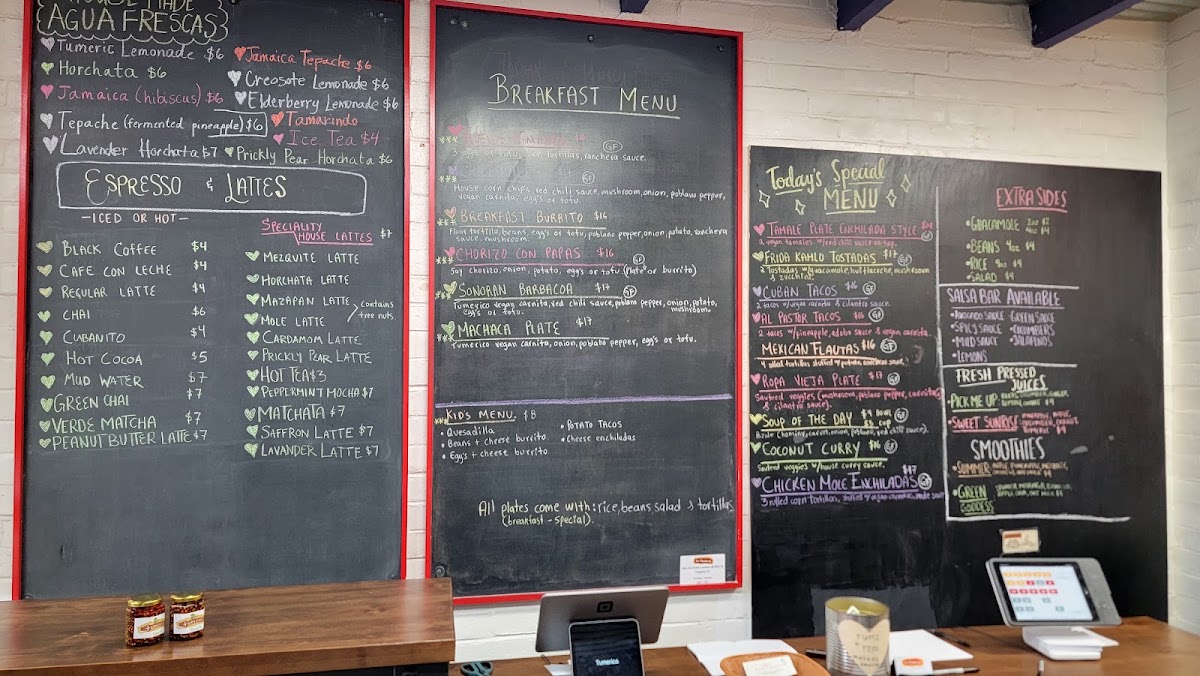 HOUSE MADE
AGUA FRESCAS
Tumeric Lemonade $6
Horchata $6
Jamaica (hibiscus) $6
Tepache (fermented pineapple) $6
Lavender Horchata $7
Jamaica Tepache $6
Creosote Lemonade $6
Elderberry Lemonade $6
Tamarindo
Ice Tea $4
Prickly Pear Horchata $6
ESPRESSO & LATTES
—ICED OR HOT—
BLACK COFFEE $4
CAFE CON LECHE $4
REGULAR LATTE $4
CHAI $6
CUBANITO $4
HOT COCOA $5
MUD WATER $7
GREEN CHAI $7
VERDE MATCHA $7
PEANUT BUTTER LATTE $7
SPECIALITY
HOUSE LATTES $7
MEZQUITE LATTE
HORCHATA LATTE
MAZAPAN LATTE
MOLE LATTE
contains
tree nuts
CARDAMOM LATTE
PRICKLY PEAR LATTE
HOT TEA $3
PEPPERMINT MOCHA $7
MATCHATA $7
SAFFRON LATTE $7
LAVANDER LATTE $7
BREAKFAST MENU
GF
3 egg's or tofu, corn tortillas, ranchera sauce.
GF
House corn chips, red chili sauce, mushroom, onion, poblano pepper,
vegan carnita, egg's or tofu.
BREAKFAST BURRITO $16
Flour tortilla, beans, egg's or tofu, poblano pepper, onion, potato, ranchera
sauce, mushroom.
CHORIZO CON PAPAS $16 GF
Soy chorizo, onion, potato, egg's or tofu (Plate or burrito)
SONORAN BARBACOA $17 GF
Tumerico vegan carnita, red chili sauce, poblano pepper, onion, potato,
egg's or tofu. mushroom.
MACHACA PLATE $17
Tumerico vegan carnita, onion, poblano pepper, egg's or tofu.
KID'S MENU. $8
• Quesadilla
• Beans + cheese burrito
• Egg's + cheese burrito
• POTATO TACOS
• Cheese enchiladas
All plates come with: rice, beans salad & tortillas
(breakfast - special).
Today's Special
MENU
TAMALE PLATE ENCHILADA STYLE
GF
2 vegan tamales w/red chili sauce on top.
FRIDA KAHLO TOSTADAS $17
GF
2 Tostadas w/guacamole, huitlacoche, mushroom
& zucchini.
CUBAN TACOS $16 GF
2 tacos w/vegan carnita & cilantro sauce.
AL PASTOR TACOS $16 GF
2 tacos w/pineapple, adobo sauce & vegan carnita.
MEXICAN FLAUTAS $16 GF
4 rolled tortillas stuffed w/potato,
ROPA VIEJA PLATE $17 GF
Sauteed veggies (mushroom, poblano pepper, carnita)
& cilantro sauce).
SOUP OF THE DAY
COCONUT CURRY $16 GF
Sauteed veggies w/house curry sauce.
CHICKEN MOLE ENCHILADAS $17 GF
3 rolled corn tortillas, stuffed w/vegan carnitas, mole sauce
EXTRA SIDES
• GUACAMOLE 2oz $2
4oz $4
• BEANS 9oz $4
• RICE 9oz $4
• SALAD $4
SALSA BAR AVAILABLE
• Avocado SAUCE
• SPICY SAUCE
• MILD SAUCE
• LEMONS
• GREEN SAUCE
• CUCUMBERS
• JALAPEÑOS
FRESH PRESSED
JUICES
PICK ME UP:
• SWEET SUNRISE:
SMOOTHIES
• SUMMER:
• GREEN
GODDESS
Tumerico